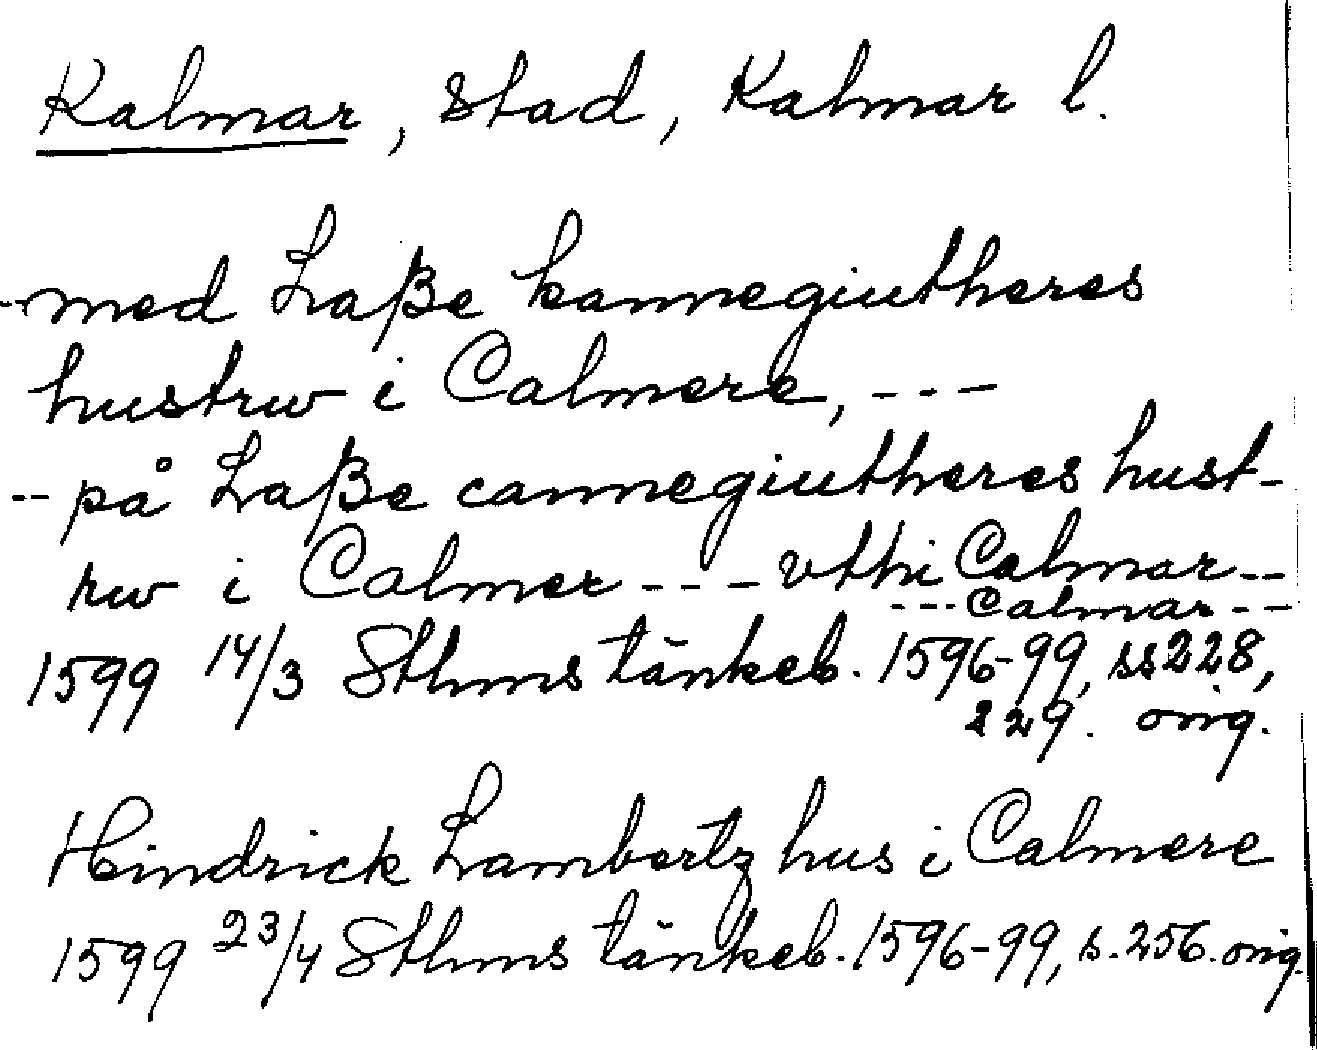 Kalmar, stad, Kalmar l.
--med Laße kannegiutheres
hustrw i Calmere, ---
-- på Laße cannegiutheres hust-
rw i Calmer --- vthi Calmar --
--- Calmar ---
1599 14/3 Sthms tänkeb. 1596-99, ss 228,
229. orig.
Hindrick Lambertz hus i Calmere
1599 23/4 Sthms tänkeb. 1596-99, s. 256. orig.